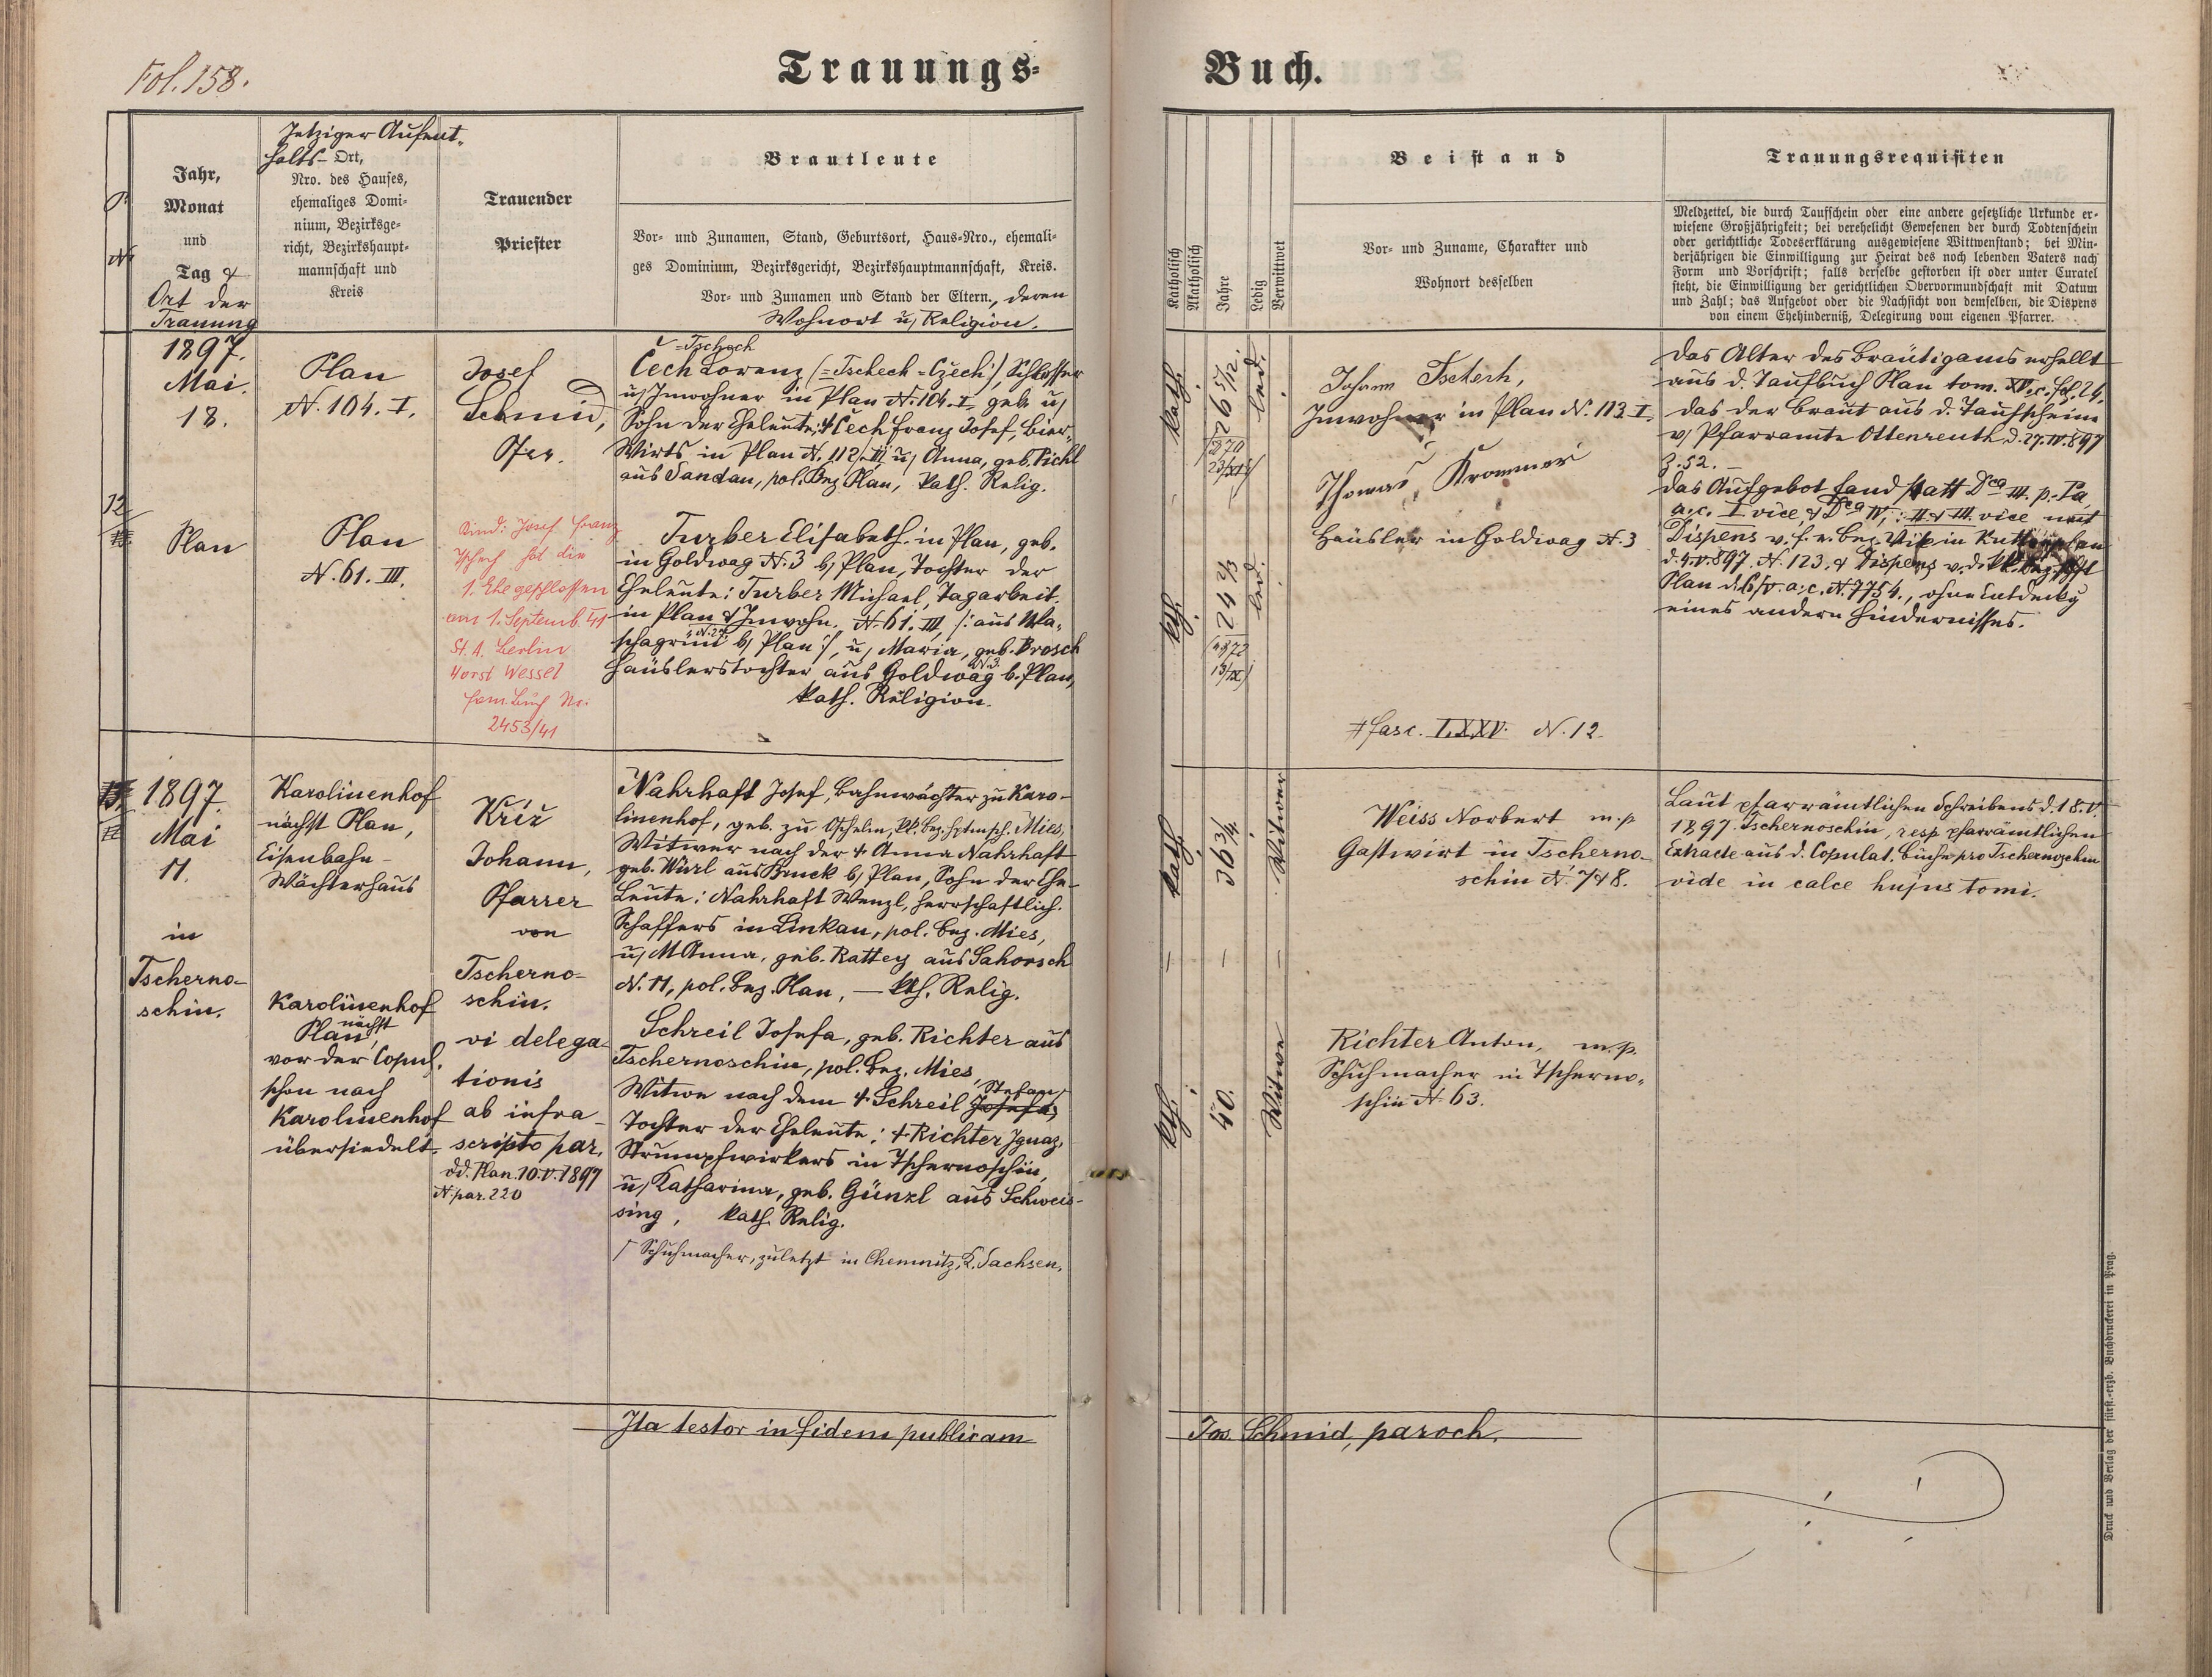 Fol. 158.
Trauungs=
Buch.
Jahr,
Monat
und
Tag &
Ort der
Trauung
Jetziger Aufent-
halts- Ort,
Nro. des Hauses,
ehemaliges Domi-
nium, Bezirksge-
richt, Bezirkshaupt-
mannschaft und
Kreis
Trauender
Priester
Brautleute
Vor- und Zunamen, Stand, Geburtsort, Haus-Nro., ehemali-
ges Dominium, Bezirksgericht, Bezirkshauptmannschaft, Kreis.
Vor- und Zunamen und Stand der Eltern., deren
Wohnort u. Religion.
Katholisch
Akatholisch
Jahre
Ledig
Verwittwet
Beistand
Vor- und Zuname, Charakter und
Wohnort desselben
Trauungsrequisiten
Meldzettel, die durch Taufschein oder eine andere gesetzliche Urkunde er-
wiesene Großjährigkeit; bei verehelicht Gewesenen der durch Todtenschein
oder gerichtliche Todeserklärung ausgewiesene Wittwenstand; bei Min-
derjährigen die Einwilligung zur Heirat des noch lebenden Vaters nach
Form und Vorschrift; falls derselbe gestorben ist oder unter Curatel
steht, die Einwilligung der gerichtlichen Obervormundschaft mit Datum
und Zahl; das Aufgebot oder die Nachsicht von demselben, die Dispens
von einem Ehehinderniß, Delegirung vom eigenen Pfarrer.
1897.
Mai.
18.
12
Plan
Plan
N. 104. I.
Plan
N. 61. III.
Josef
Schmid,
Pfrr.
Kind: Josef Franz
Tschech hat die
1. Ehe geschlossen
am 1. Septemb. 41
St. A. Berlin
Horst Wessel
Fam. Buch Nr:
2453/41
=Tschech
Čech Lorenz (=Tschech=Czech), Schlosser
u. Inwohner in Plan N. 104. I, geb. u.
Sohn der Eheleute: † Čech Franz Josef, Bier-
Wirts in Plan N. 112. II u. Anna, geb. Pichl
aus Sandau, pol. Bez. Plan, kath. Relig.
Turber Elisabeth in Plan, geb.
in Goldwag N. 3 b. Plan, Tochter der
Eheleute: Turber Michael, Tagarbeit.
in Plan & Inwohn. N. 61. III, /: aus Wa-
schagrün N. 24 b. Plan :/, u. Maria, geb. Brosch
Häuslerstochter aus Goldwag N. 3. b. Plan,
kath. Religion.
kath.
26 5/12.
1870
23/XII
led.
kth.
24 2/3
1872
13/IX
led.
Johann Tschech,
Inwohner in Plan N. 113 I.
Thomas Krommer
Häusler in Goldwag N. 3
# fasc. LXXV. N. 12
Das Alter des Bräutigams erhellt
aus d. Taufbuch Plan tom. XV. c. fol. 24,
das der Braut aus d. Taufscheine
v. Pfarramte Ottenreuth d. 27. IV. 897
Z. 52. —
Das Aufgebot fand statt Dca III. p. Pa
a. c. I vice, & Dca IV, : II & III. vice mit
Dispens v. f. e. Bez. Vik. in Kuttenplan
d. 4. V. 897. N. 123. & Dispens v. d. kk. Bez. Hptft
Plan d. 6/V. a. c. N. 7754., ohne Entdeckg
eines andern Hindernisses.
13.
1897.
Mai
11.
in
Tscherno-
schin.
Karolinenhof
nächst Plan,
Eisenbahn-
Wächterhaus
Karolinenhof
nächst
Plan,
vor der Copul.
schon nach
Karolinenhof
übersiedelt.
Kříž
Johann,
Pfarrer
von
Tscherno-
schin.
vi delega-
tionis
ab infra-
scripto par.
dd. Plan. 10. V. 1897
N. par. 220
Nahrhaft Josef, Bahnwächter zu Karo-
linenhof, geb. zu Oschelin, kk. Bez. Hptmsch. Mies,
Witwer nach der † Anna Nahrhaft
geb. Würl aus Bruck b. Plan, Sohn der Ehe-
Leute: Nahrhaft Wenzl, herrschaftlich.
Schaffers in Linkau, pol. Bez. Mies,
u. M. Anna, geb. Rattey aus Sahorsch
N. 11, pol. Bez. Plan, — kth. Relig.
Schreil Josefa, geb. Richter aus
Tschernoschin, pol. Bez. Mies,
Witwe nach dem † Schreil Josefa, Stefan ⌈
Tochter der Eheleute: † Richter Ignaz,
Strumpfwirkers in Tschernoschin
u. Katharina, geb. Günzl aus Schweis-
sing, kath. Relig.
⌈ Schuhmacher, zuletzt in Chemnitz, K. Sachsen.
kath.
36 3/4.
Witwer
kth.
40.
Witwe
Weiss Norbert m. p.
Gastwirt in Tscherno-
schin N. 748.
Richter Anton, m. p.
Schuhmacher in Tscherno-
schin N. 63.
Laut pfarrämtlichen Schreibens d. 18. V.
1897. Tschernoschin, resp. pfarrämtlichen
Extracte aus d. Copulat. Buche pro Tschernoschin
vide in calce hujus tomi.
Ita testor in fidem publicam
Jos. Schmid, paroch.
Druck und Verlag der fürst.-erzb. Buchdruckerei in Prag.